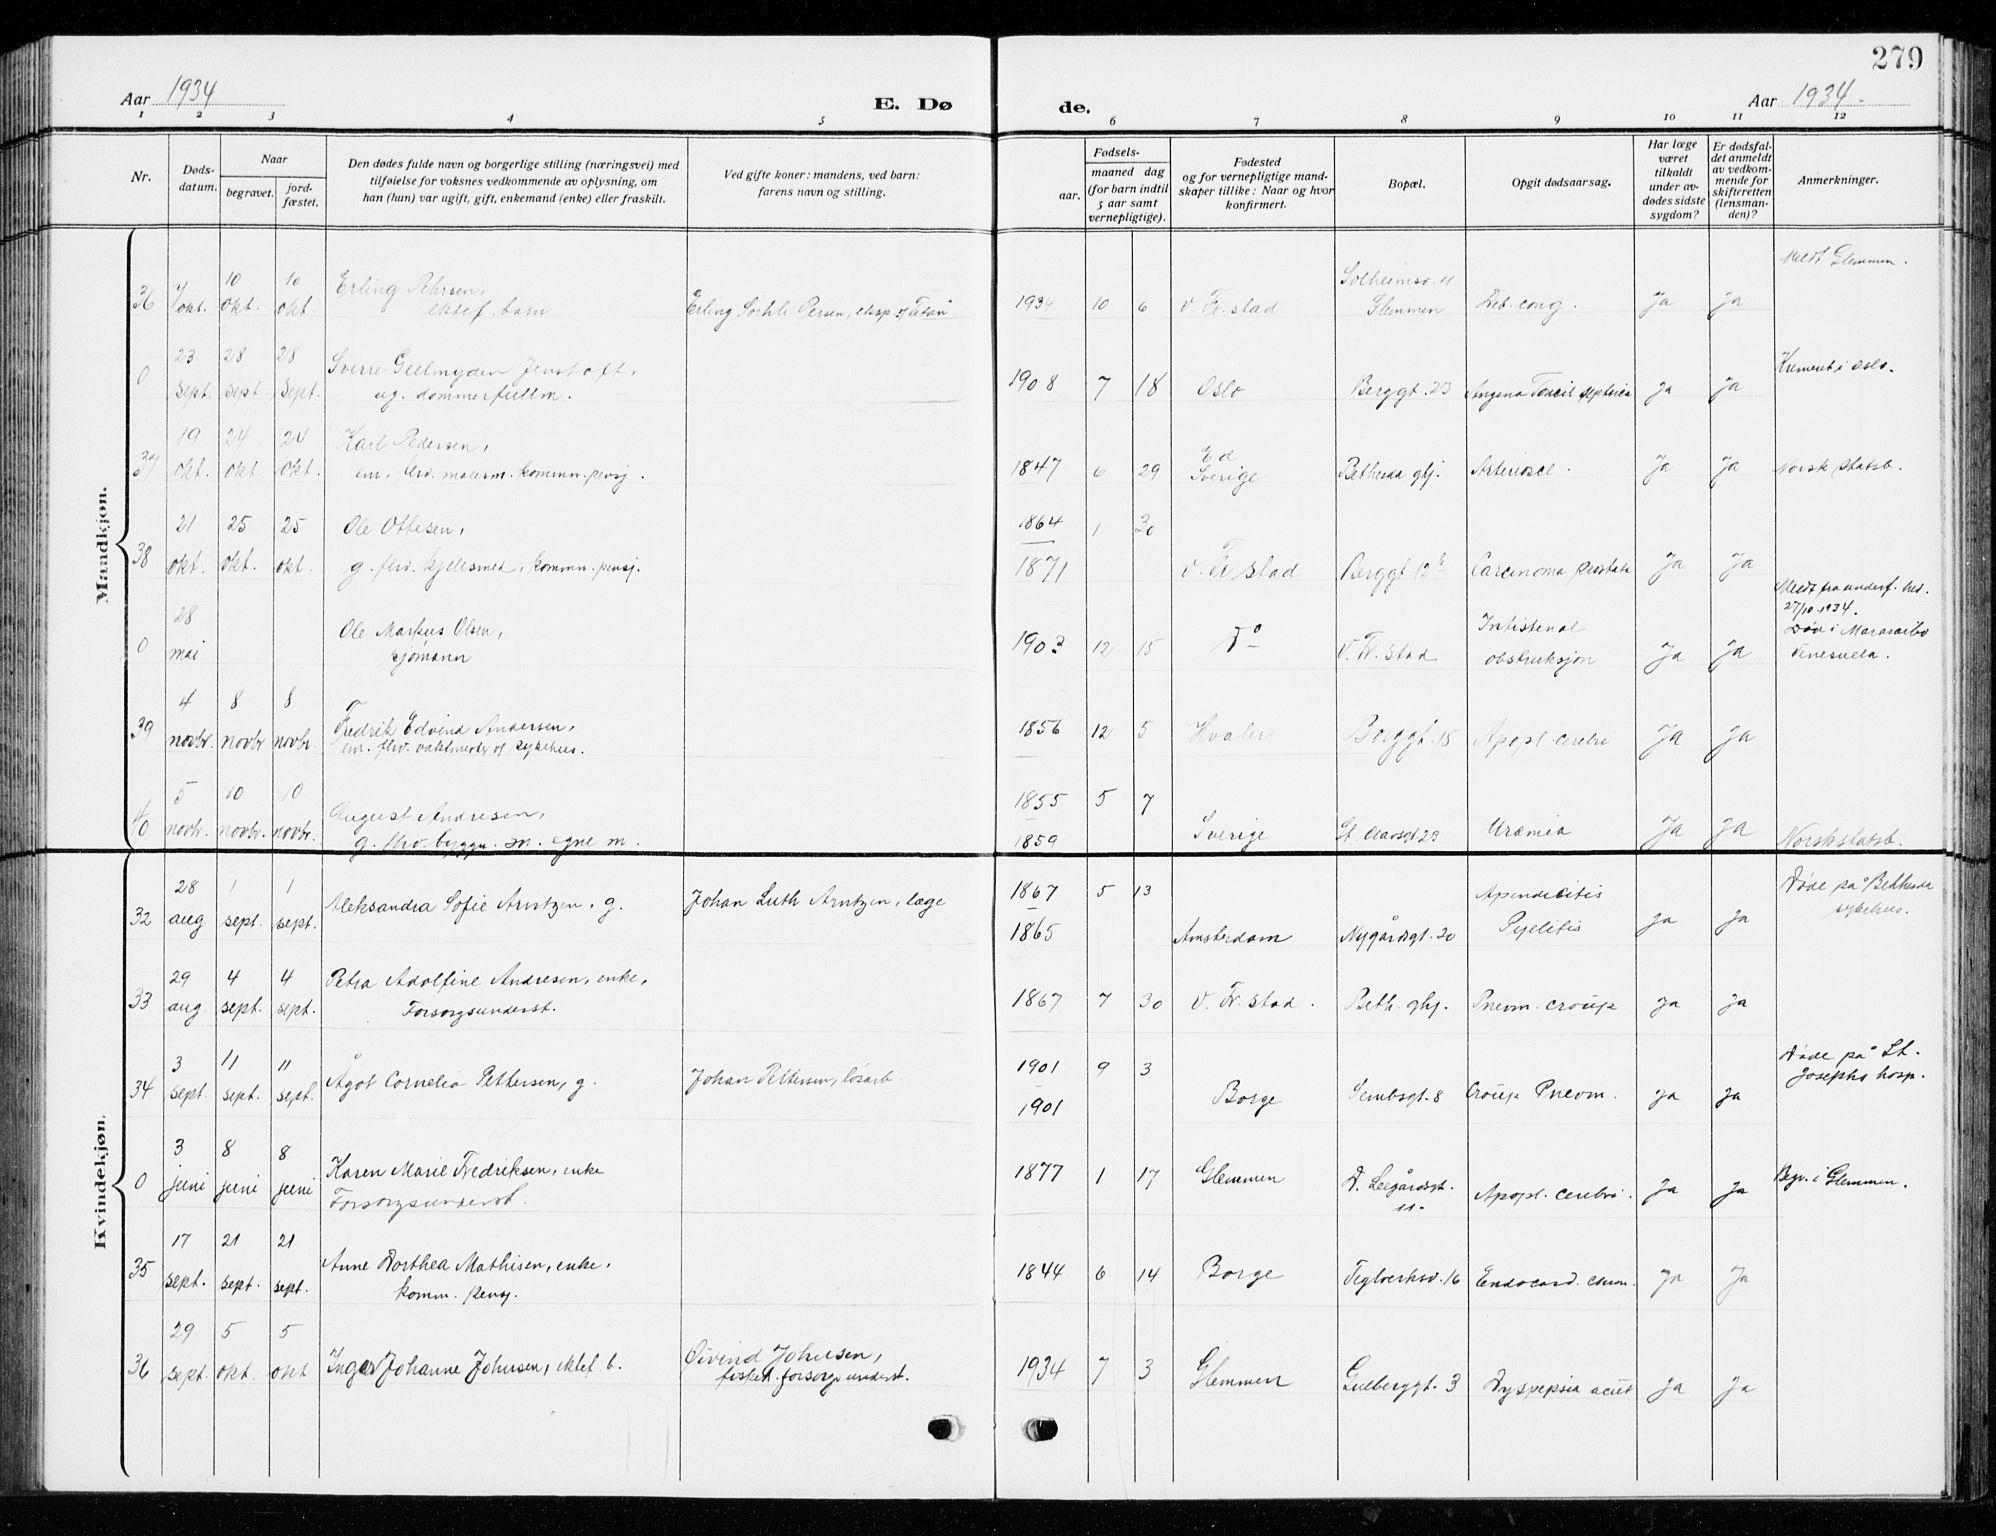 279
Aar 1934
E. Dø
de.
Aar 1934
1 2 3 4 5 6 7 8 9 10 11 12
Nr.
Døds-
datum.
Naar
begravet.
jord-
fæstet.
Den dødes fulde navn og borgerlige stilling (næringsvei) med
tilføielse for voksnes vedkommende av oplysning, om
han (hun) var ugift, gift, enkemand (enke) eller fraskilt.
Ved gifte koner: mandens, ved barn:
farens navn og stilling.
Fødsels-
aar.
maaned dag
(for barn indtil
5 aar samt
vernepligtige).
Fødested
og for vernepligtige mand-
skaper tillike: Naar og hvor
konfirmert.
Bopæl.
Opgit dødsaarsag.
Har læge
været
tilkaldt
under av-
dødes sidste
sygdom?
Er dødsfal-
det anmeldt
av vedkom-
mende for
skifteretten
(lensman-
den)?
Anmerkninger.
Mandkjøn.
10 10 Erling Pehrsen, Solheimsv. 11 Meldt Glemmen.
36 7 okt. okt. okt. ektef. barn Erling 1934 10 6 v. Fr. stad Glemmen Deb. cong. Ja Ja
23 28 28 Sverre Krement i Oslo.
0 sept. sept. sept. ug. dommerfullm. 1908 7 18 Oslo Berggt. 23 Angina septica Ja Ja
19 24 24 Karl Pedersen, Ed
37 okt. okt. okt. em. malerm. kommn. pensj. 1847 6 29 Sverige Bethesda ghj. Arterioscl. Ja Ja Norsk statsb.
21 25 25 Ole Ottesen, 1864 1 30
38 okt. okt. okt. g. fhv. kjelesmed, kommn. pensj. 1871 v. Fr stad Berggt 12 b Carcinoma prostata Ja Ja
28 Ole Markus Olsen, Intistenal Meldt fra underf. hed.
27/10 1934.
0 mai sjømann 1903 12 15 Do V. Fr. stad obstruksjon Ja Ja Død i Maracaibo
Venesuela.
4 8 8 Fredrik Edvind Andersen,
39 novbr. novbr. novbr. em. fhv. vaktmester sykehus. 1856 12 5 Hvaler Borggt. 15 Apopl. cerebri Ja Ja
5 10 10 August Andresen, 1855 5 7
40 novbr. novbr. novbr. g. fhv. byggm. egne m. 1859 Sverige 23 Uræmia Ja Ja Norsk statsb.
Kvindekjøn.
28 1 1 Aleksandra Sofie Arntzen, g. Johan Luth Arntzen, læge 1867 5 13 Apendicitis Døde på Bethesda
32 aug sept. sept. 1865 Amsterdam Nygårdsgt. 20 Pyelitis Ja Ja sykehus.
29 4 4 Petra Adolfine Andresen, enke,
33 aug. sept. sept. Forsorgsunderst. 1867 7 30 v. Fr. stad. Beth. ghj. Pnevm. croup Ja Ja
3 11 11 Ågot Cornelia Pettersen, g. Johan Pettersen, løsarb. 1901 9 3 Døde på St.
34 sept. sept. sept. 1901 Borge Sembsgt. 8 Croup Pnevm. Ja Ja Josephs hosp.
3 8 8 Karen Marie Fredriksen, enke 1877 1 17 Glemmen D. Leegårdsgt. Begr. i Glemmen.
0 juni juni juni Forsorgsunderst. 11. Apopl. cerebri. Ja Ja
17 21 21 Anne Dorthea Mathisen, enke,
35 sept. sept. sept. komm. pensj. 1844 6 14 Borge Teglverksv. 16 Endocard. chron. Ja Ja
29 5 5 Øivind Johnsen,
36 sept. okt. okt Inger Johanne Johnsen, ektef b. fisker. forsorgsunderst. 1934 7 3 Glemmen Gulberggt. 3 Dyspepsia acut Ja Ja